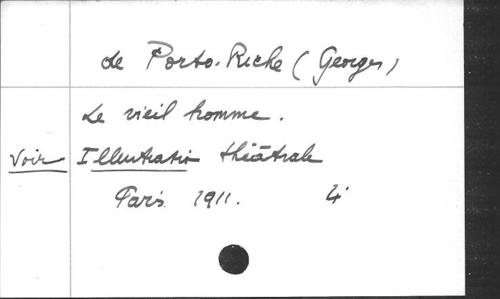 de Porto-Riche (Georges)
Le vieil homme.
Voir Illustration théâtrale
Paris 1911. 4°